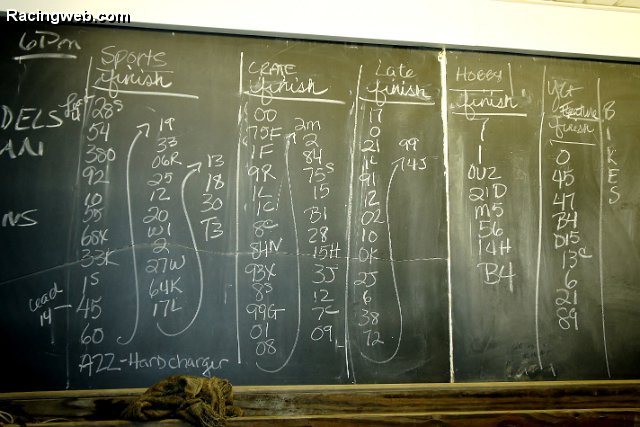 Racingweb.com
6Pm
DELS
AN
NS
Sports
finish
28s
54
380
92
10
55
68x
33K
1s
45
60
lead
14
A22-Hardcharger
19
33
06R
25
12
20
W1
2
27W
64K
17L
13
18
30
T3
CRATE
finish
00
75F
1F
9R
1L
1C
8c
84N
93X
8s
99G
01
08
2m
2
84
75s
15
B1
28
15H
3J
12
7c
09
Late
finish
17
0
21
1L
91
12
02
10
0K
25
6
38
72
99
14J
HOBBY
finish
7
1
0U2
21D
m5
156
14H
B4
Feature
finish
0
45
47
B4
D15
13c
6
21
89
BIKES